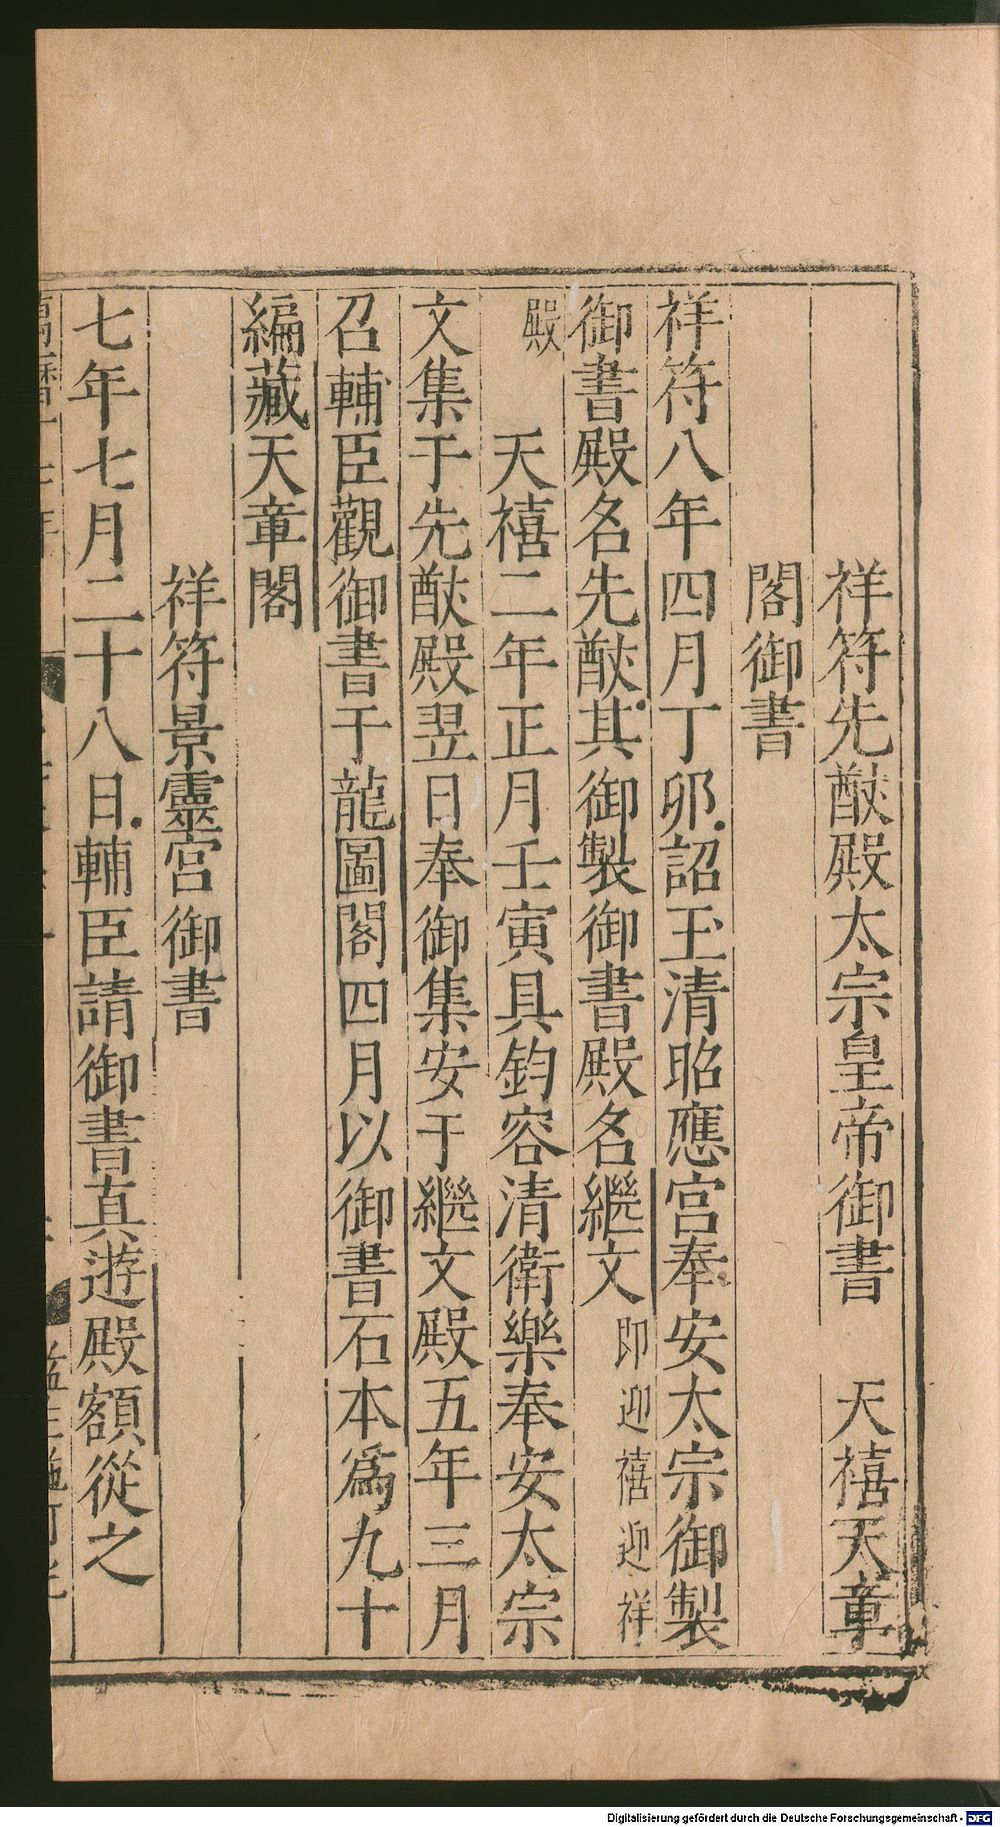 祥符先猷殿太宗皇帝御書　天禧天章
閣御書
祥符八年四月丁卯詔玉清昭應宮奉安太宗御製
御書殿名先猷其御製御書殿名繼文即迎禧迎祥
殿　天禧二年正月壬寅具鈞容清衛樂奉安太宗
文集于先猷殿翌日奉御集安于繼文殿五年三月
召輔臣觀御書于龍圖閣四月以御書石本爲九十
編藏天章閣
祥符景靈宮御書
七年七月二十八日輔臣請御書真遊殿額從之
Digitalisierung gefördert durch die Deutsche Forschungsgemeinschaft - DFG